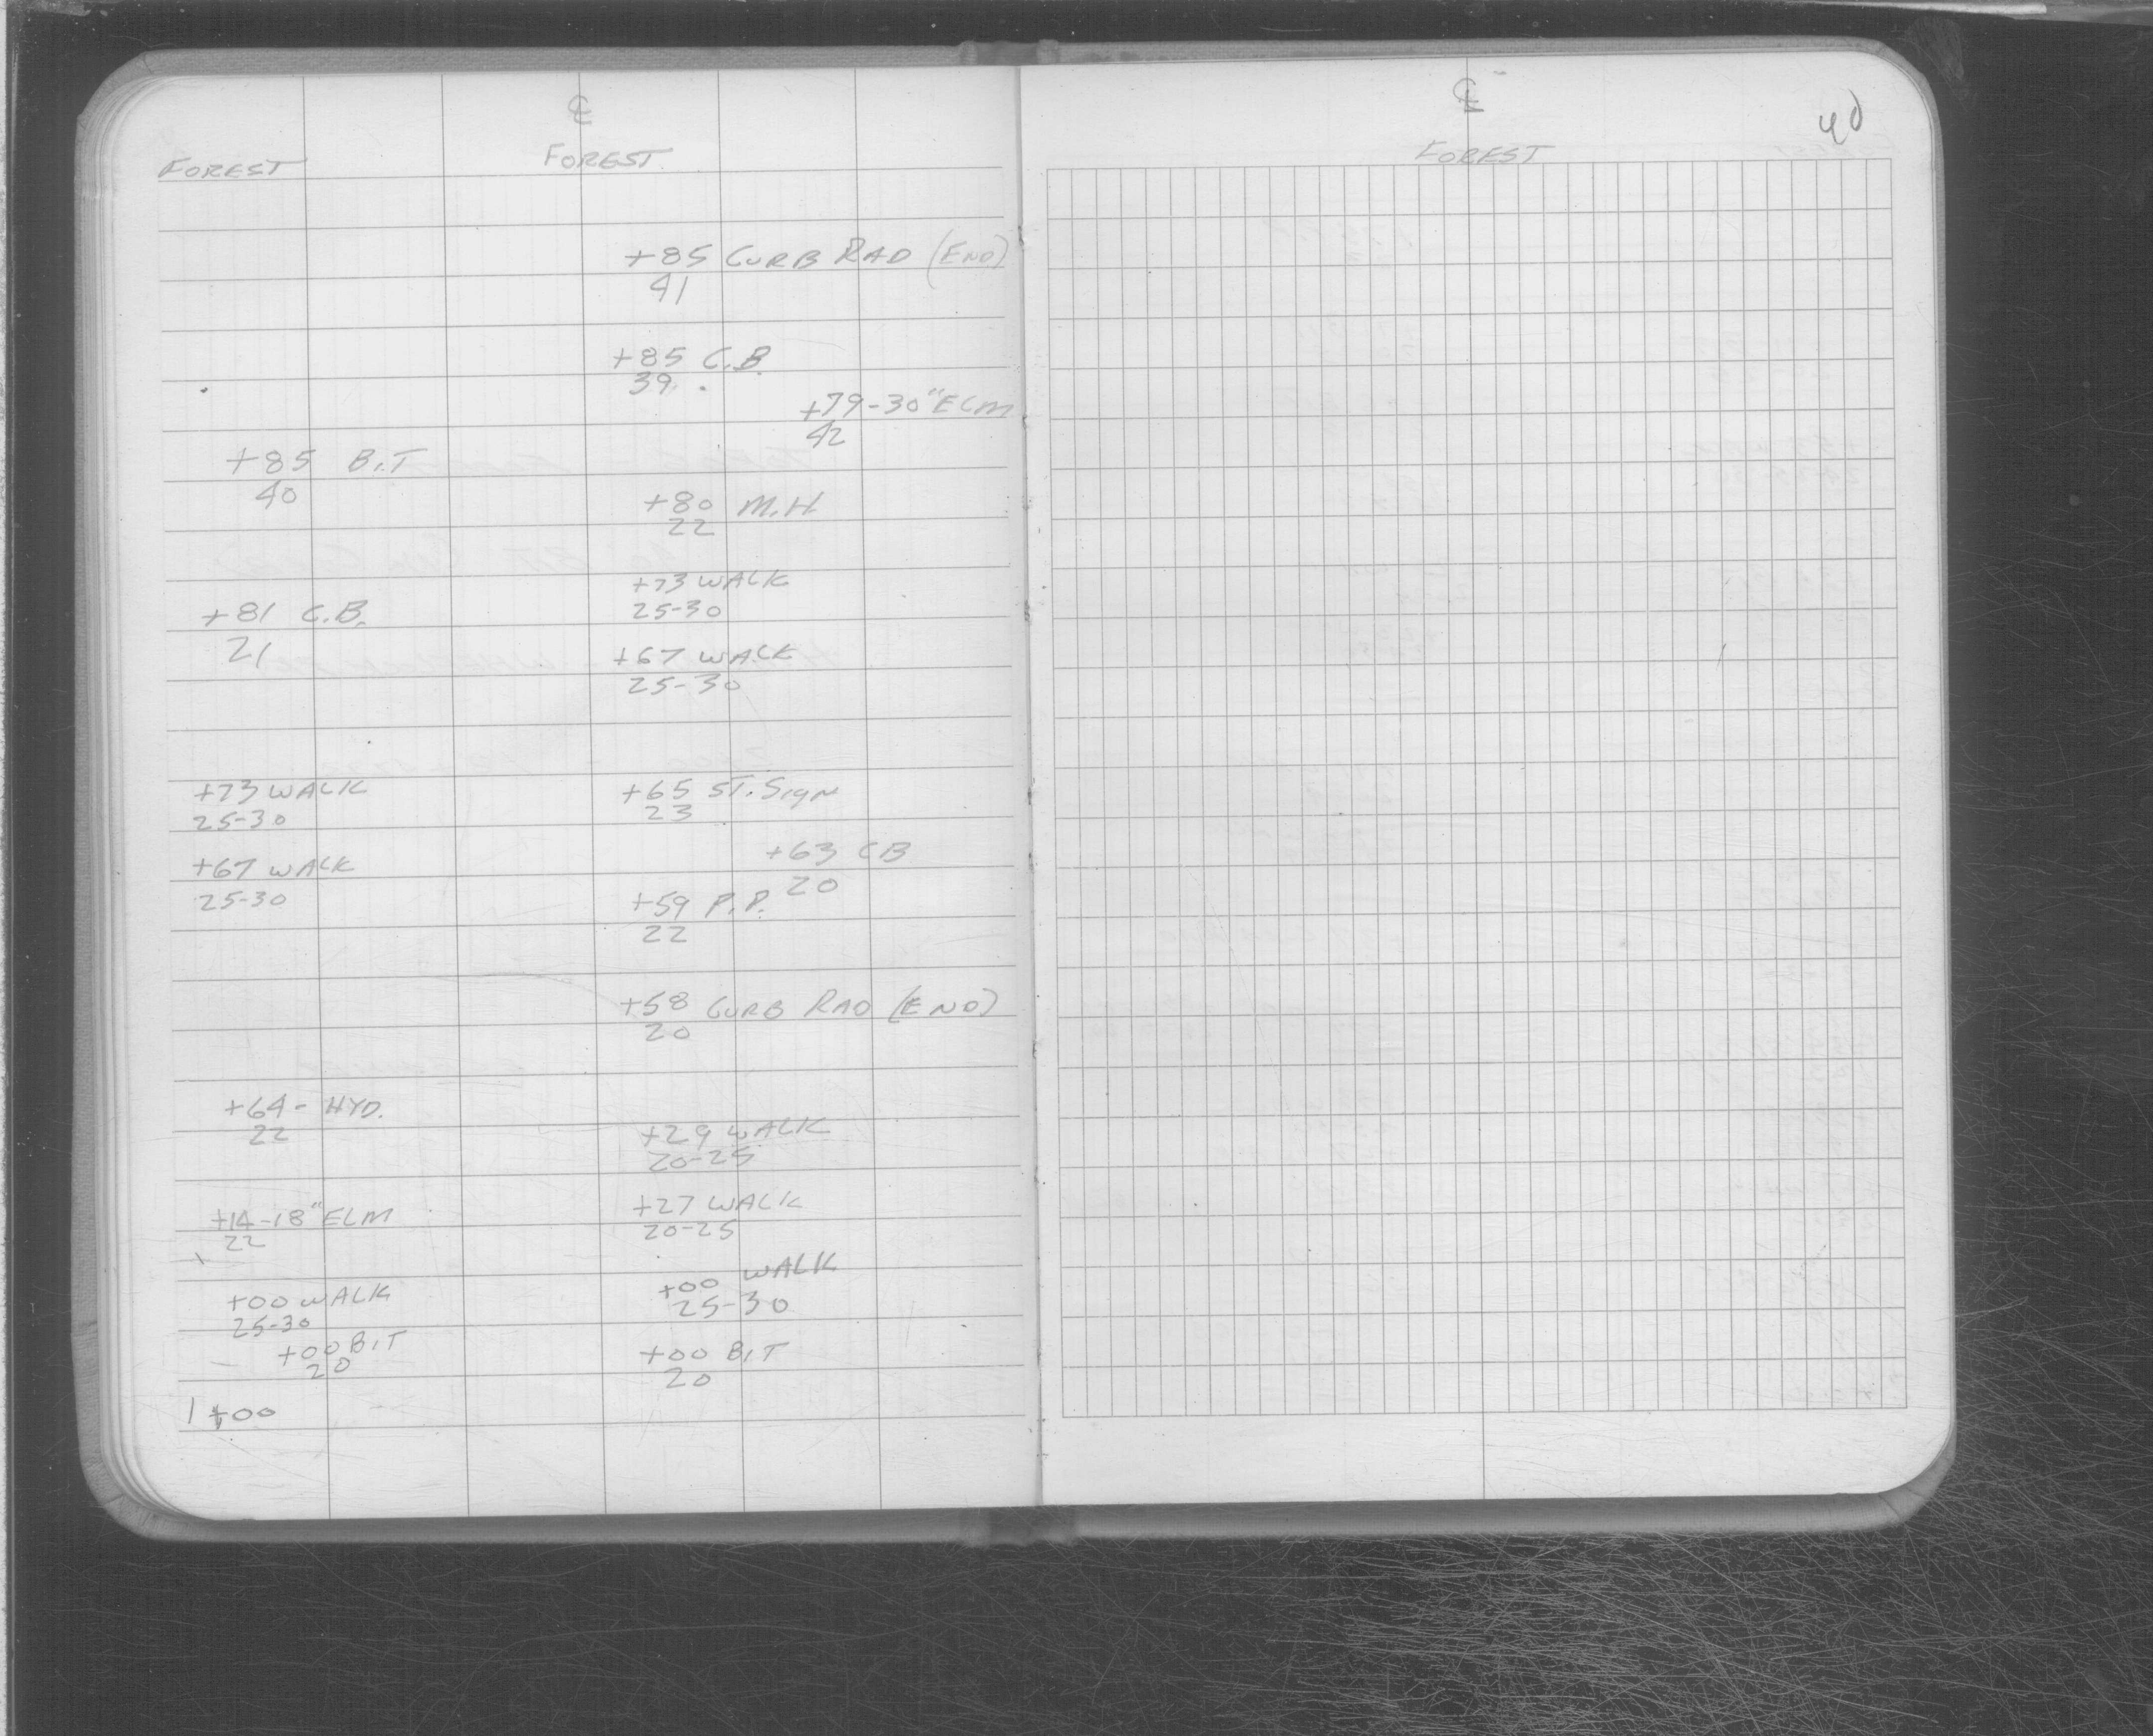 ℄
FOREST
FOREST
+85 CURB RAD (END)
41
+85 C.B.
39
+79-30" ELM
42
+85 BIT
40
+80 M.H.
22
+73 WALK
25-30
+81 C.B.
21
+67 WALK
25-30
+73 WALK
25-30
+65 ST. SIGN
23
+67 WALK
25-30
+63 CB
20
+59 P.P.
22
+58 CURB RAD (END)
20
+64- HYD.
22
+29 WALK
20-25
+14-18" ELM
22
+27 WALK
20-25
+00 WALK
25-30
+00 WALK
25-30
+00 BIT
20
+00 BIT
20
1+00
℄
40
FOREST